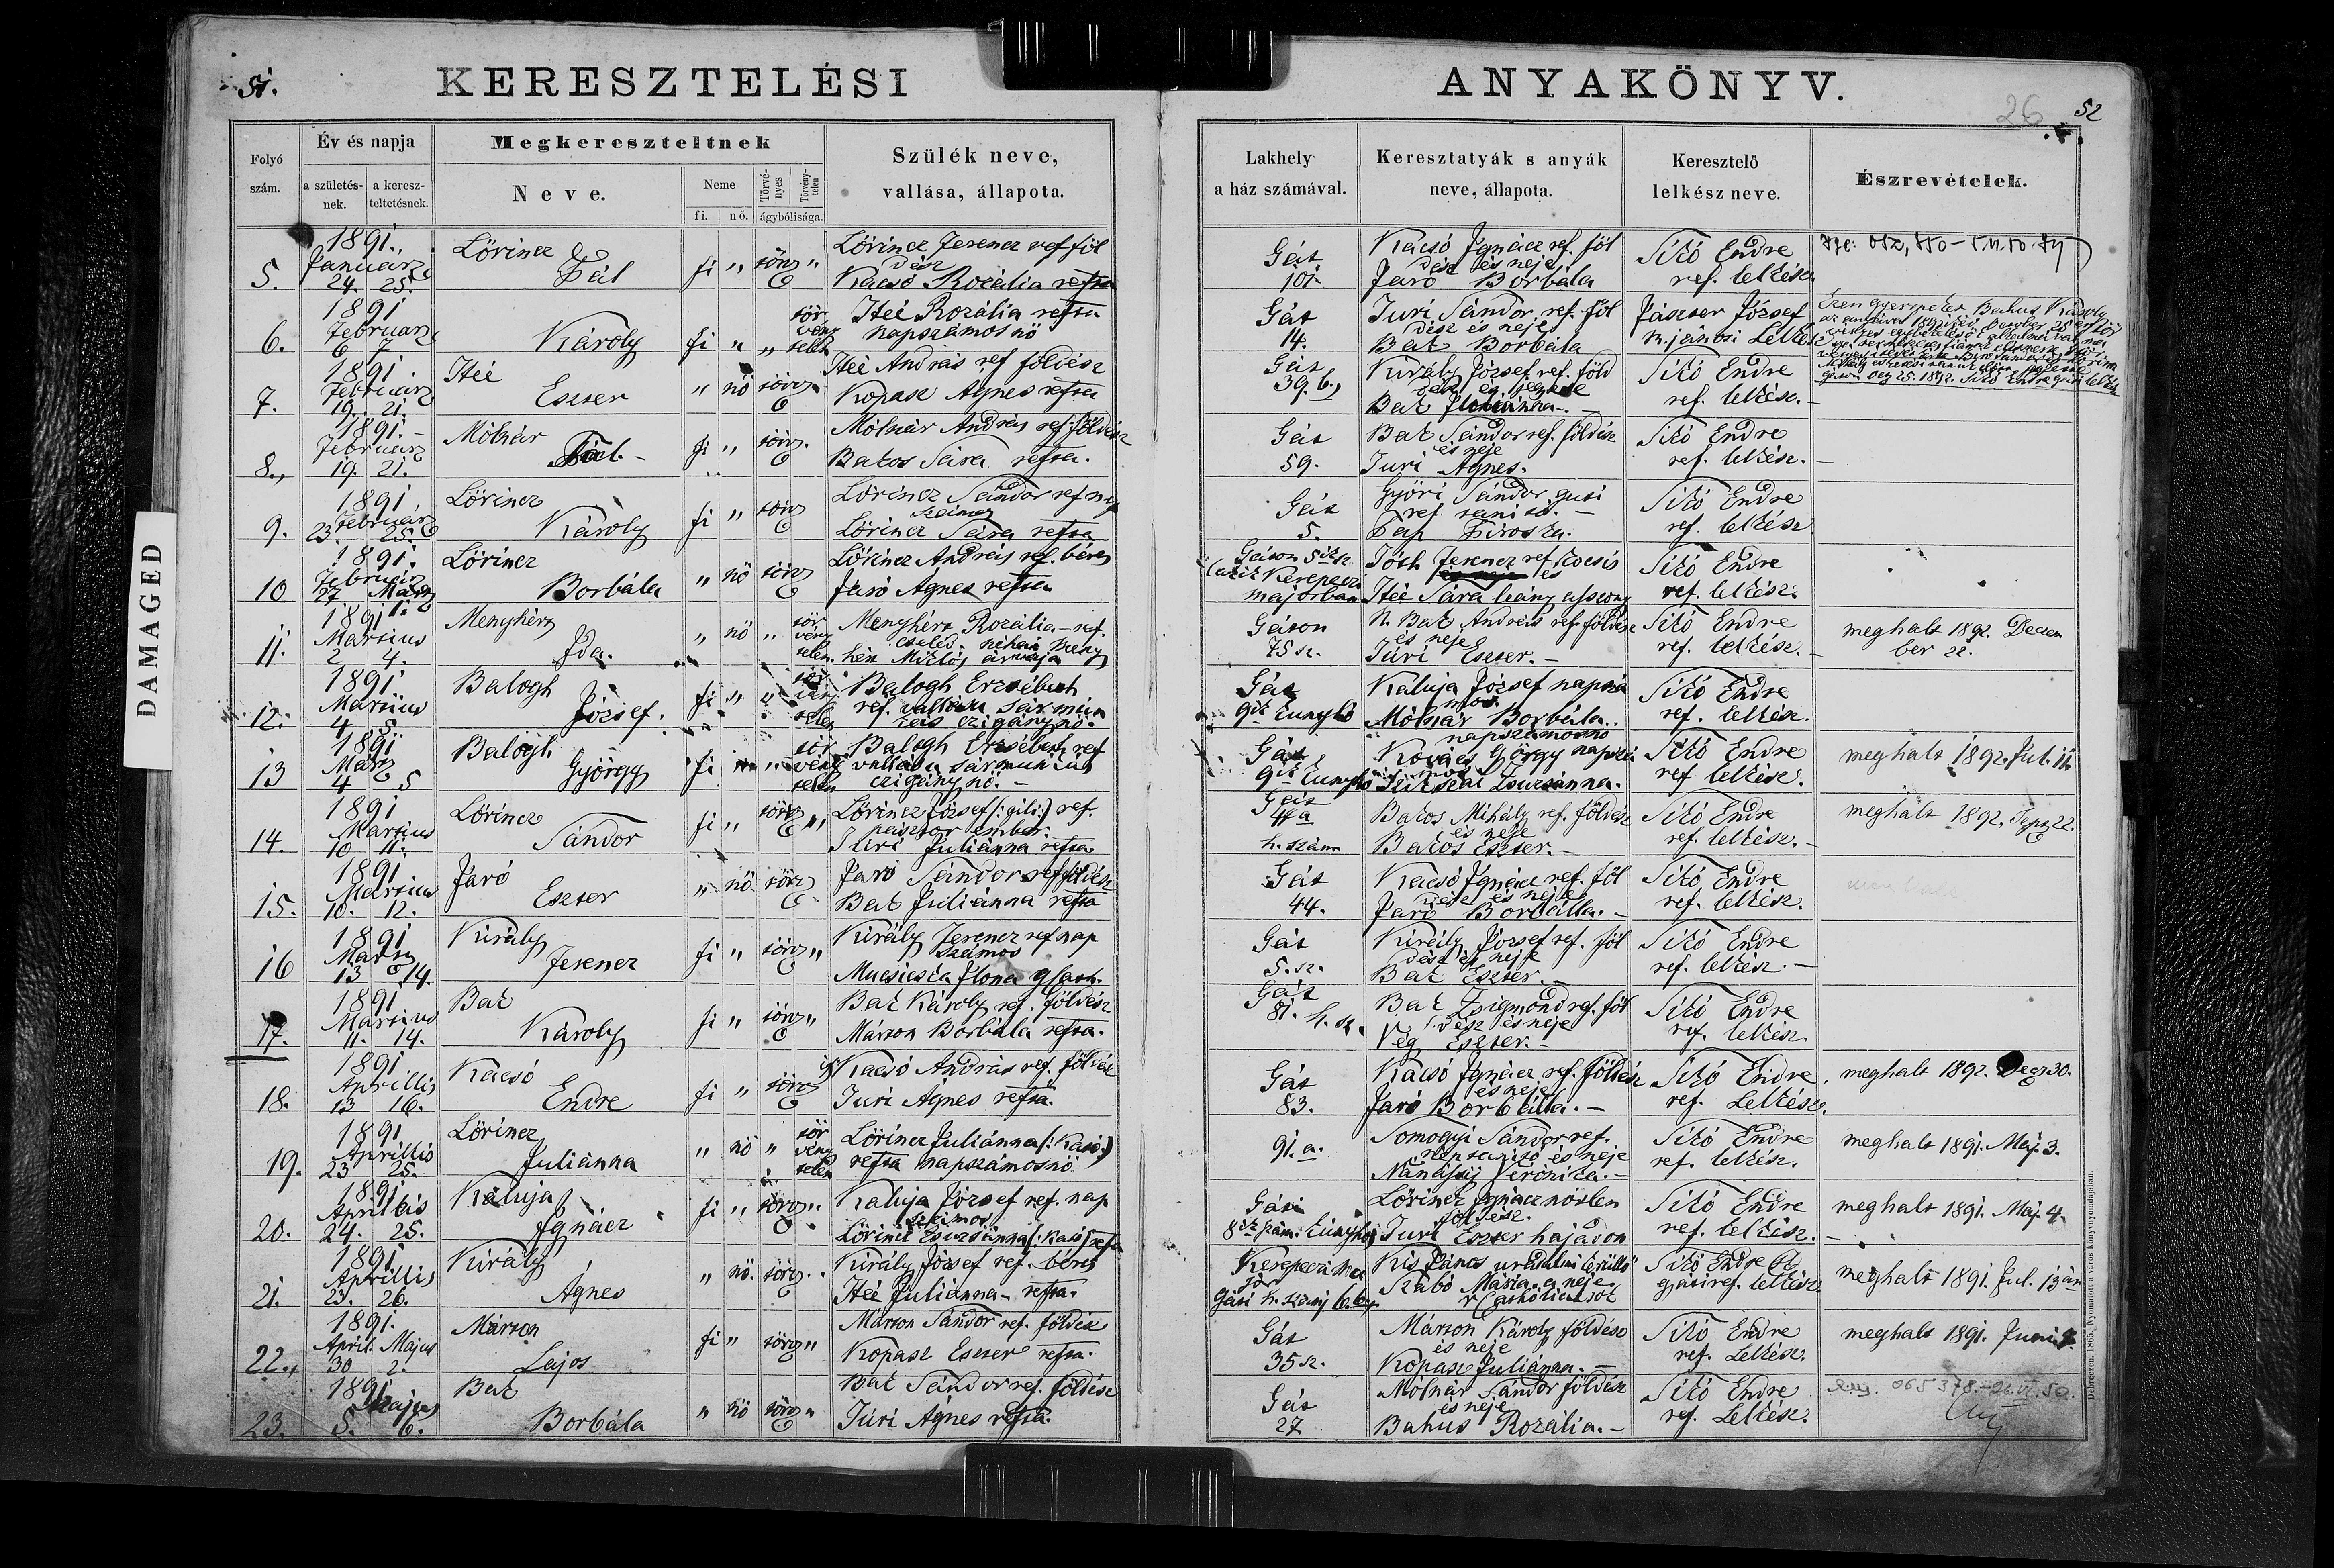 51.
KERESZTELÉSI
ANYAKÖNYV.
26
52
DAMAGED
Folyó szám.
Év és napja
a születés-nek.
a keresz-teltetésnek.
Megkereszteltnek
Neve.
Neme
fi. nő.
Törvé-nyes
Törvény-telen
ágybólisága.
Szülék neve,
vallása, állapota.
Lakhely
a ház számával.
Keresztatyák s anyák
neve, állapota.
Keresztelő
lelkész neve.
Észrevételek.
5. 1891. Január 24. 25. Lőrincz Pál fi " törv "
Lőrincz Ferencz ref föl
dész
Kácsó Rozália refta
Gát 101.
Kácsó Ignácz ref. föl
dész és neje
Jaró Borbála
Sitó Endre
ref. lelkész
6. 1891 Február 6 7 Károly fi " " tör
vény
telen
Itéé Rozália refta
napszámosnő
Gát 14.
Turi Sándor ref. föl
dész és neje
Bat Borbála
Jászter József
m.jánosi Lelkész
Ezen gyermeket Bahus Károly
Dec 25. 1892. Sitó Endre gáti lelkész
7. 1891 Február 19. 21. Itéé Eszter " nő törv "
Itéé András ref földész
Kopasz Agnes refta
Gát 39. b.
Király József ref. föld
Bat Juliánna. —
Sitó Endre
ref. lelkész. —
8., 1891. Február 19. 21. Mólnár Pál. fi " törv.
Mólnár András ref: földész
Batos Sára refta.
Gát 59.
Bat Sándor ref. földész
és neje
Turi Agnes.
Sitó Endre
ref. lelkész.
9. 1891 Február 23. 25. Lőrincz Károly fi " törv
Lőrincz Sándor ref nap
számos
Lőrincz Sára refta
Gát 5.
Győri Sándor gáti
ref tanitó. —
Pap Piroska.
Sitó Endre
ref. lelkész
10 1891. Február 27 Márcz 1. Lőrincz Borbála " nő törv
Lőrincz András ref. béres
Jaró Agnes refta
Gáton
Kerepecz
majorban
Tóth Ferencz ref. kocsis
és
Itéé Sára leány asszony
Sitó Endre
ref. lelkész.
11. 1891 Martius 2 4. Menyhért Ida. " nő " tör
vény
telen.
Menyhért Rozália — ref.
cseléd. néhai Meny
hért Miklós árvája
Gáton
75 sz.
N. Bat András ref. földész
és neje
Túri Eszter. —
Sitó Endre
ref. lelkész. —
meghalt 1892. Decem
ber 22.
12. 1891 Martius 4 5. Balogh József. fi " " tör
vény
telen
Balogh Erzsébeth
ref. vallásu sármun
kás czigány nő.
Gát
9ik kunyhó
Kaluja József napszá
mos
Mólnár Borbála..
napszámosnő
Sitó Endre
ref. lelkész.
13 1891 Márcz 4 5 Balogh György fi " " tör
vény
telen
Balogh Erzsébeth ref
vallásu sármunkás
czigány nő. —
Gát
9ik kunyhó
Kovács György napszá
mos
Zsuzsánna.
Sitó Endre
ref lelkész.
meghalt 1892. Jul. 11.
14. 1891 Martius 10 11. Lőrincz Sándor fi " törv "
Lőrincz József (: gili:) ref.
pásztor ember.
Juliánna refta
Gát
h. szám
Batos Mihály ref. földész
és neje
Batos Eszter. —
Sitó Endre
ref. lelkész. —
meghalt 1892. Sept 22.
15. 1891 Martius 10. 12. Jaró Eszter " nő. törv
Jaró Sándor ref földész
Bat Juliánna refta
Gát 44.
Kácsó Ignácz ref. föl
dész és neje
Jaró Borbálla. —
Sitó Endre
ref. lelkész.
16 1891 Mart 13 14. Király Ferencz fi " törv "
Király Ferencz ref nap
számos
Ilona g. cath.
Gát
5. sz.
Király József ref. föl
dész és neje
Bat Eszter
Sitó Endre
ref. lelkész. —
17. 1891 Martius 11. 14. Bat Károly fi " törv "
Bat Károly ref. földész
Márton Borbála refta.
Gát
81. h. sz.
Bat Zsigmond ref. föl
dész és neje
Vég Eszter. —
Sitó Endre
ref. lelkész.
18. 1891 Aprillis 13 16. Kácsó Endre fi " törv
ifj Kácsó András ref. földész
Turi Agnes refta.
Gát 83.
Kácsó Ignácz ref. földész
és neje
Jaró Borbálla. —
Sitó Endre.
ref. Lelkész.
meghalt 1892. Dec 30.
19. 1891 Aprillis 23 25. Lőrincz Juliánna " nő " tör
vény
telen
Lőrincz Juliánna (: Kató:)
refta napszámosnő
91. a.
Somogyi Sándor ref.
néptanitó és neje
Veronika. —
Sitó Endre
ref. lelkész.
meghalt 1891. Máj. 3.
20. 1891 Aprillis 24. 25. Kaluja Ignácz fi " törv "
Kaluja József ref. nap
számos
Lőrincz Zsuzsánna (: Kató) refta
Gáti
Lőrincz Ignácz nőtlen
földész.
Turi Eszter hajadon
Sitó Endre
ref. lelkész. —
meghalt 1891. Máj. 4.
21. 1891 Aprillis 23. 26. Király Ágnes " nő. törv. "
Király József ref. béres
Itéé Juliánna — refta.
Kerepeczi ma
jor
Kis János uradalmi kerülő
Szabó Mária a neje.
r. Catholicusok
Sitó Endre
gáti ref. lelkész.
meghalt 1891. Jul. 13án
22., 1891. April. 30 Május 2. Márton Lajos fi " törv "
Márton Sándor ref. földész
Kopasz Eszter refta.
Gát
35 sz.
Márton Károly földész
és neje
Kopasz Juliánna. —
Sitó Endre
ref. Lelkész.
meghalt 1891. Juni
23. 1891 Május 5. 6. Bat Borbála " nő törv "
Bat Sándor ref. földész
Túri Agnes refta.
Gát
27
Mólnár Sándor földész
és neje
Bahus Rozália. —
Sitó Endre
ref. Lelkész.
065378
Debreczen. 1865. Nyomatott a város könyvnyomdájában.